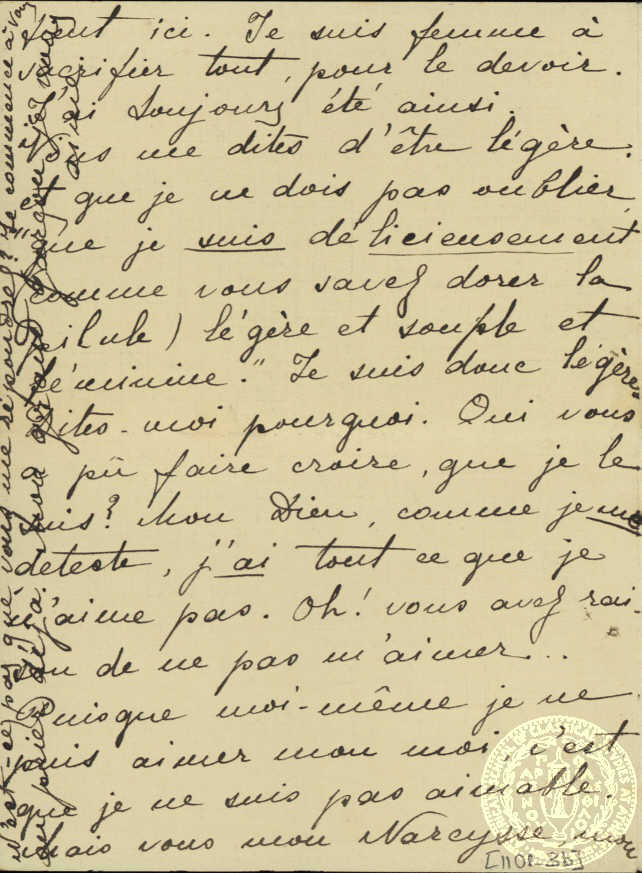 tient ici. Je suis femme à
sacrifier tout, pour le devoir.
J'ai toujours été ainsi.
Vous me dites d'être légère.
et que je ne dois pas oublier
"que je suis délicieusement
(comme vous savez dorer la
pilule) légère et souple et
féminine." Je suis donc légère
Dites-moi pourquoi. Qui vous
a pû faire croire, que je le
suis? Mon Dieu, comme je me
deteste, j'ai tout ce que je
n'aime pas. Oh! vous avez rai-
son de ne pas m'aimer...
Puisque moi-même je ne
puis aimer mon moi, c'est
que je ne suis pas aimable.
Mais vous mon Narcysse, mon
N'est-ce pas que vous me répondrez? Je commence à vous
supplier déjà. Mon grand garçon
[1101-3b]